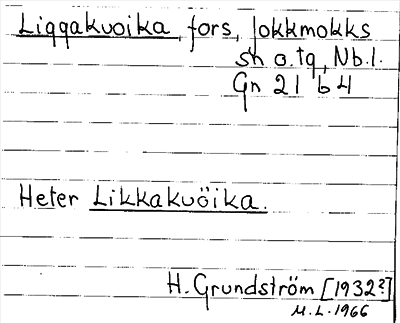 Liggakuoika, fors, Jokkmokks
sn o. tg, Nb. l.
Gn 21 b 4
Heter Likkakuöika.
H. Grundström [1932?]
M. L. 1966